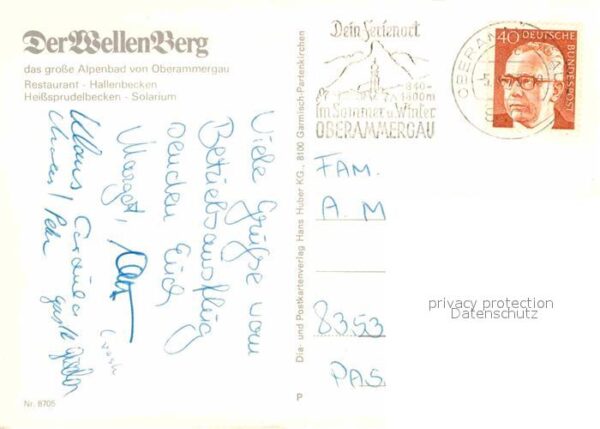 Der WellenBerg
das große Alpenbad von Oberammergau
Restaurant - Hallenbecken
Heißsprudelbecken - Solarium
Viele Grüße vom
Betriebsausflug
senden Euch
Margot,
Klaus
Peter
Nr. 8705
Dia- und Postkartenverlag Hans Huber KG., 8100 Garmisch-Partenkirchen
P
Dein Ferienort
im Sommer u. Winter
OBERAMMERGAU
40
DEUTSCHE
BUNDESPOST
FAM.
A. M
8353
PAS
privacy protection
Datenschutz